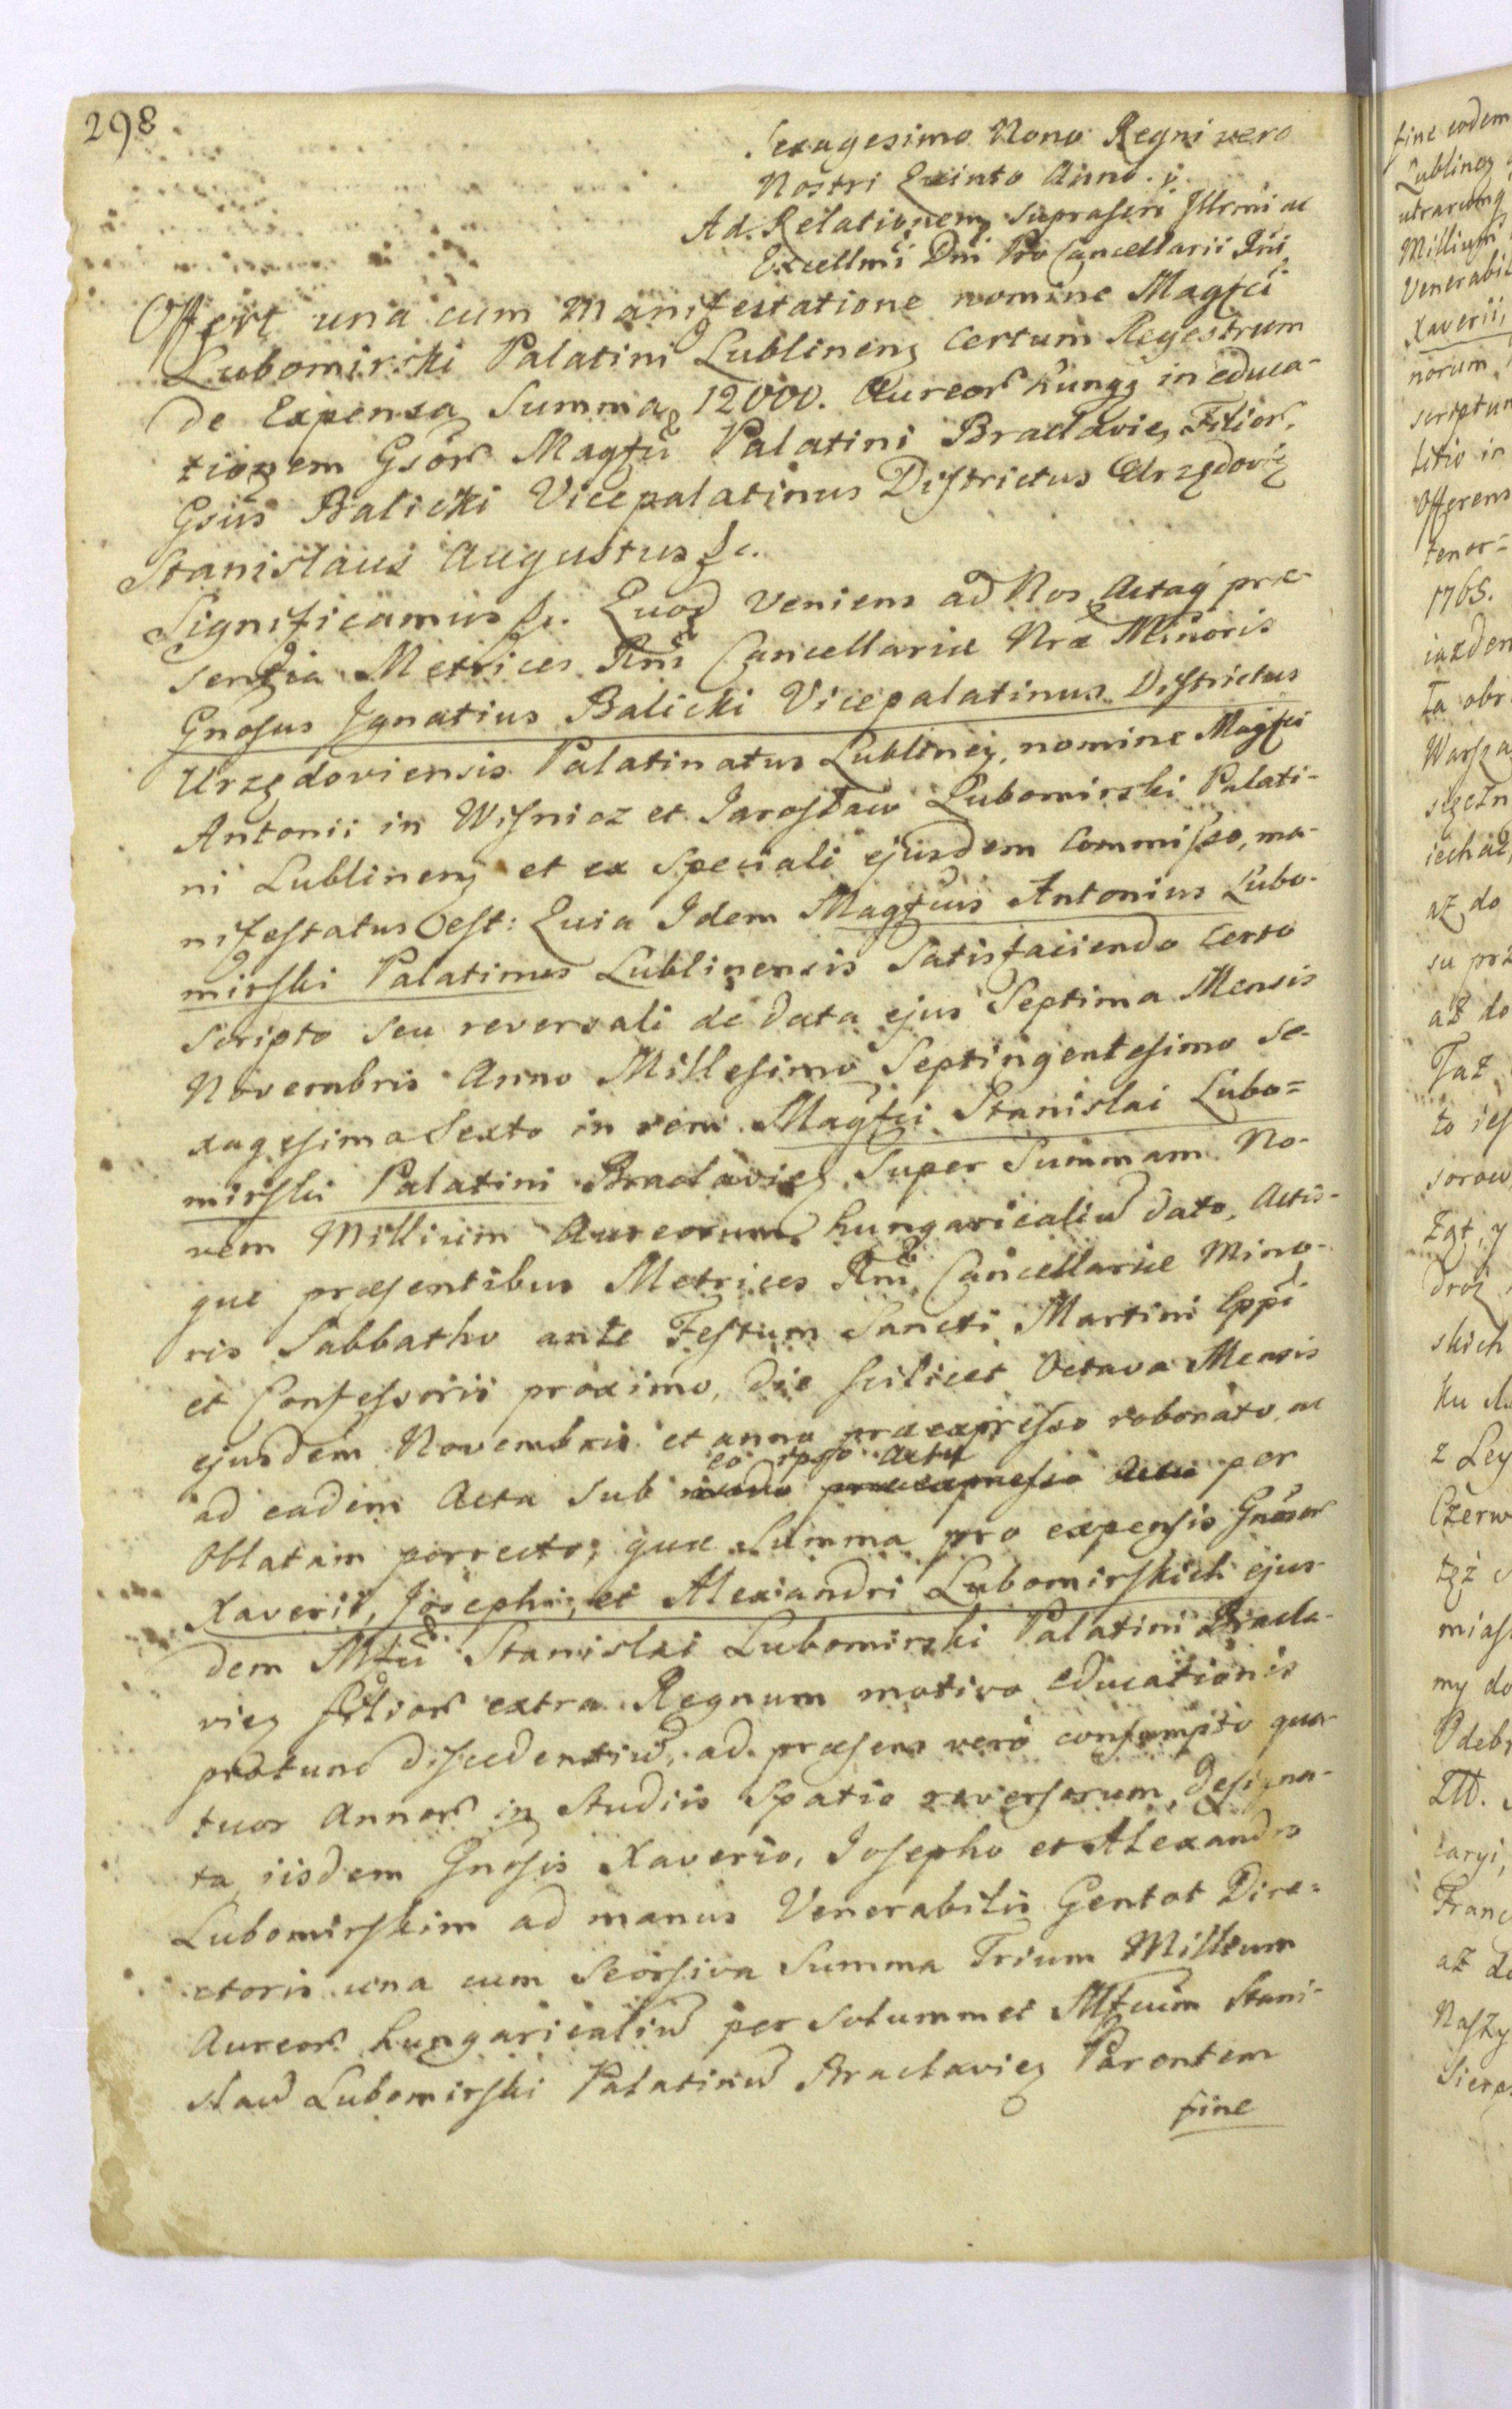 298
Sexagesimo Nono Regni vero
Nostri Quinto Anno.
Ad Relationem suprascri Illrmi ac
Excellmi Dni Pro Cancellarii Rni
Offert una cum Manifestatione nomine Magfci
Lubomirski Palatini Lublinenq certum Regestrum
de Expensa Summa 12000. Aureor hungq in educa-
tionem Gsor Magfci Palatini Braclavieq Filior,
Gsus Balicki Vicepalatinus Districtus Urzędovieq
Stanislaus Augustus &c.
Significamus &c. Quod veniens ad Nos Actaq prae-
sentia Metrices Rni Cancellariae Nrae Minoris
Gnosus Ignatius Balicki Vicepalatinus Districtus
Urzędoviensis Palatinatus Lublineq, nomine Magfci
Antonii in Wisnicz et Jarosław Lubomirski Palati-
ni Lublinenq et ex speciali ejusdem commisso, ma-
nifestatus est: Quia Idem Magfcus Antonius Lubo-
mirski Palatinus Lublinensis Satisfaciendo certo
scripto seu reversali de data ejus Septima Mensis
Novembris Anno Millesimo Septingentesimo Se-
xagesimo Sexto in rem Magfci Stanislai Lubo=
mirski Palatini Braclavieq Super Summam No-
vem Millium Aureorum hungaricaliu dato, Actis-
que praesentibus Metrices Rni Cancellariae Mino-
ris Sabbatho ante Festum Sancti Martini Eppi
et Confessoris proximo, die scilicet Octava Mensis
ejusdem Novembris et anno praeexpresso roborato, ac
eo ipso actu
ad eadem Acta sub praeexpresso Actu per
Oblatam porrecto; quae Summa pro expensis Gnosor
Xaverii, Josephi, et Alexandri Lubomirskich ejus-
dem Mfci Stanislai Lubomirski Palatini Bracla-
vieq filior extra Regnum motivo educationis
protunc discedentiu, ad praesens vero consumpto qua-
tuor Annor in Studiis Spatio reversorum, designa-
ta iisdem Gnosis Xaverio, Josepho et Alexandro
Lubomirskim ad manus Venerabilis Gentot Dire=
ctoris una cum seorsiva Summa Trium Millium
Aureor hungaricaliu per solummet Mfcum Stani-
slau Lubomirski Palatinu Braclavieq Parentem
sine
sine eodem
Lublineq
utrarumq
Millium
Venerabil
Xaverii,
norum
scriptum
titio in
Offerens
tenor=
1765.
iazden
ta obr
Warsza
iechac,
az do
su prz
aż do
Taż
to ies
sorow
droż
skich
Ku
z Ley
Czerw
mias
my do
Odebr
caryi,
Franc
aż do
Naszy
Sierp